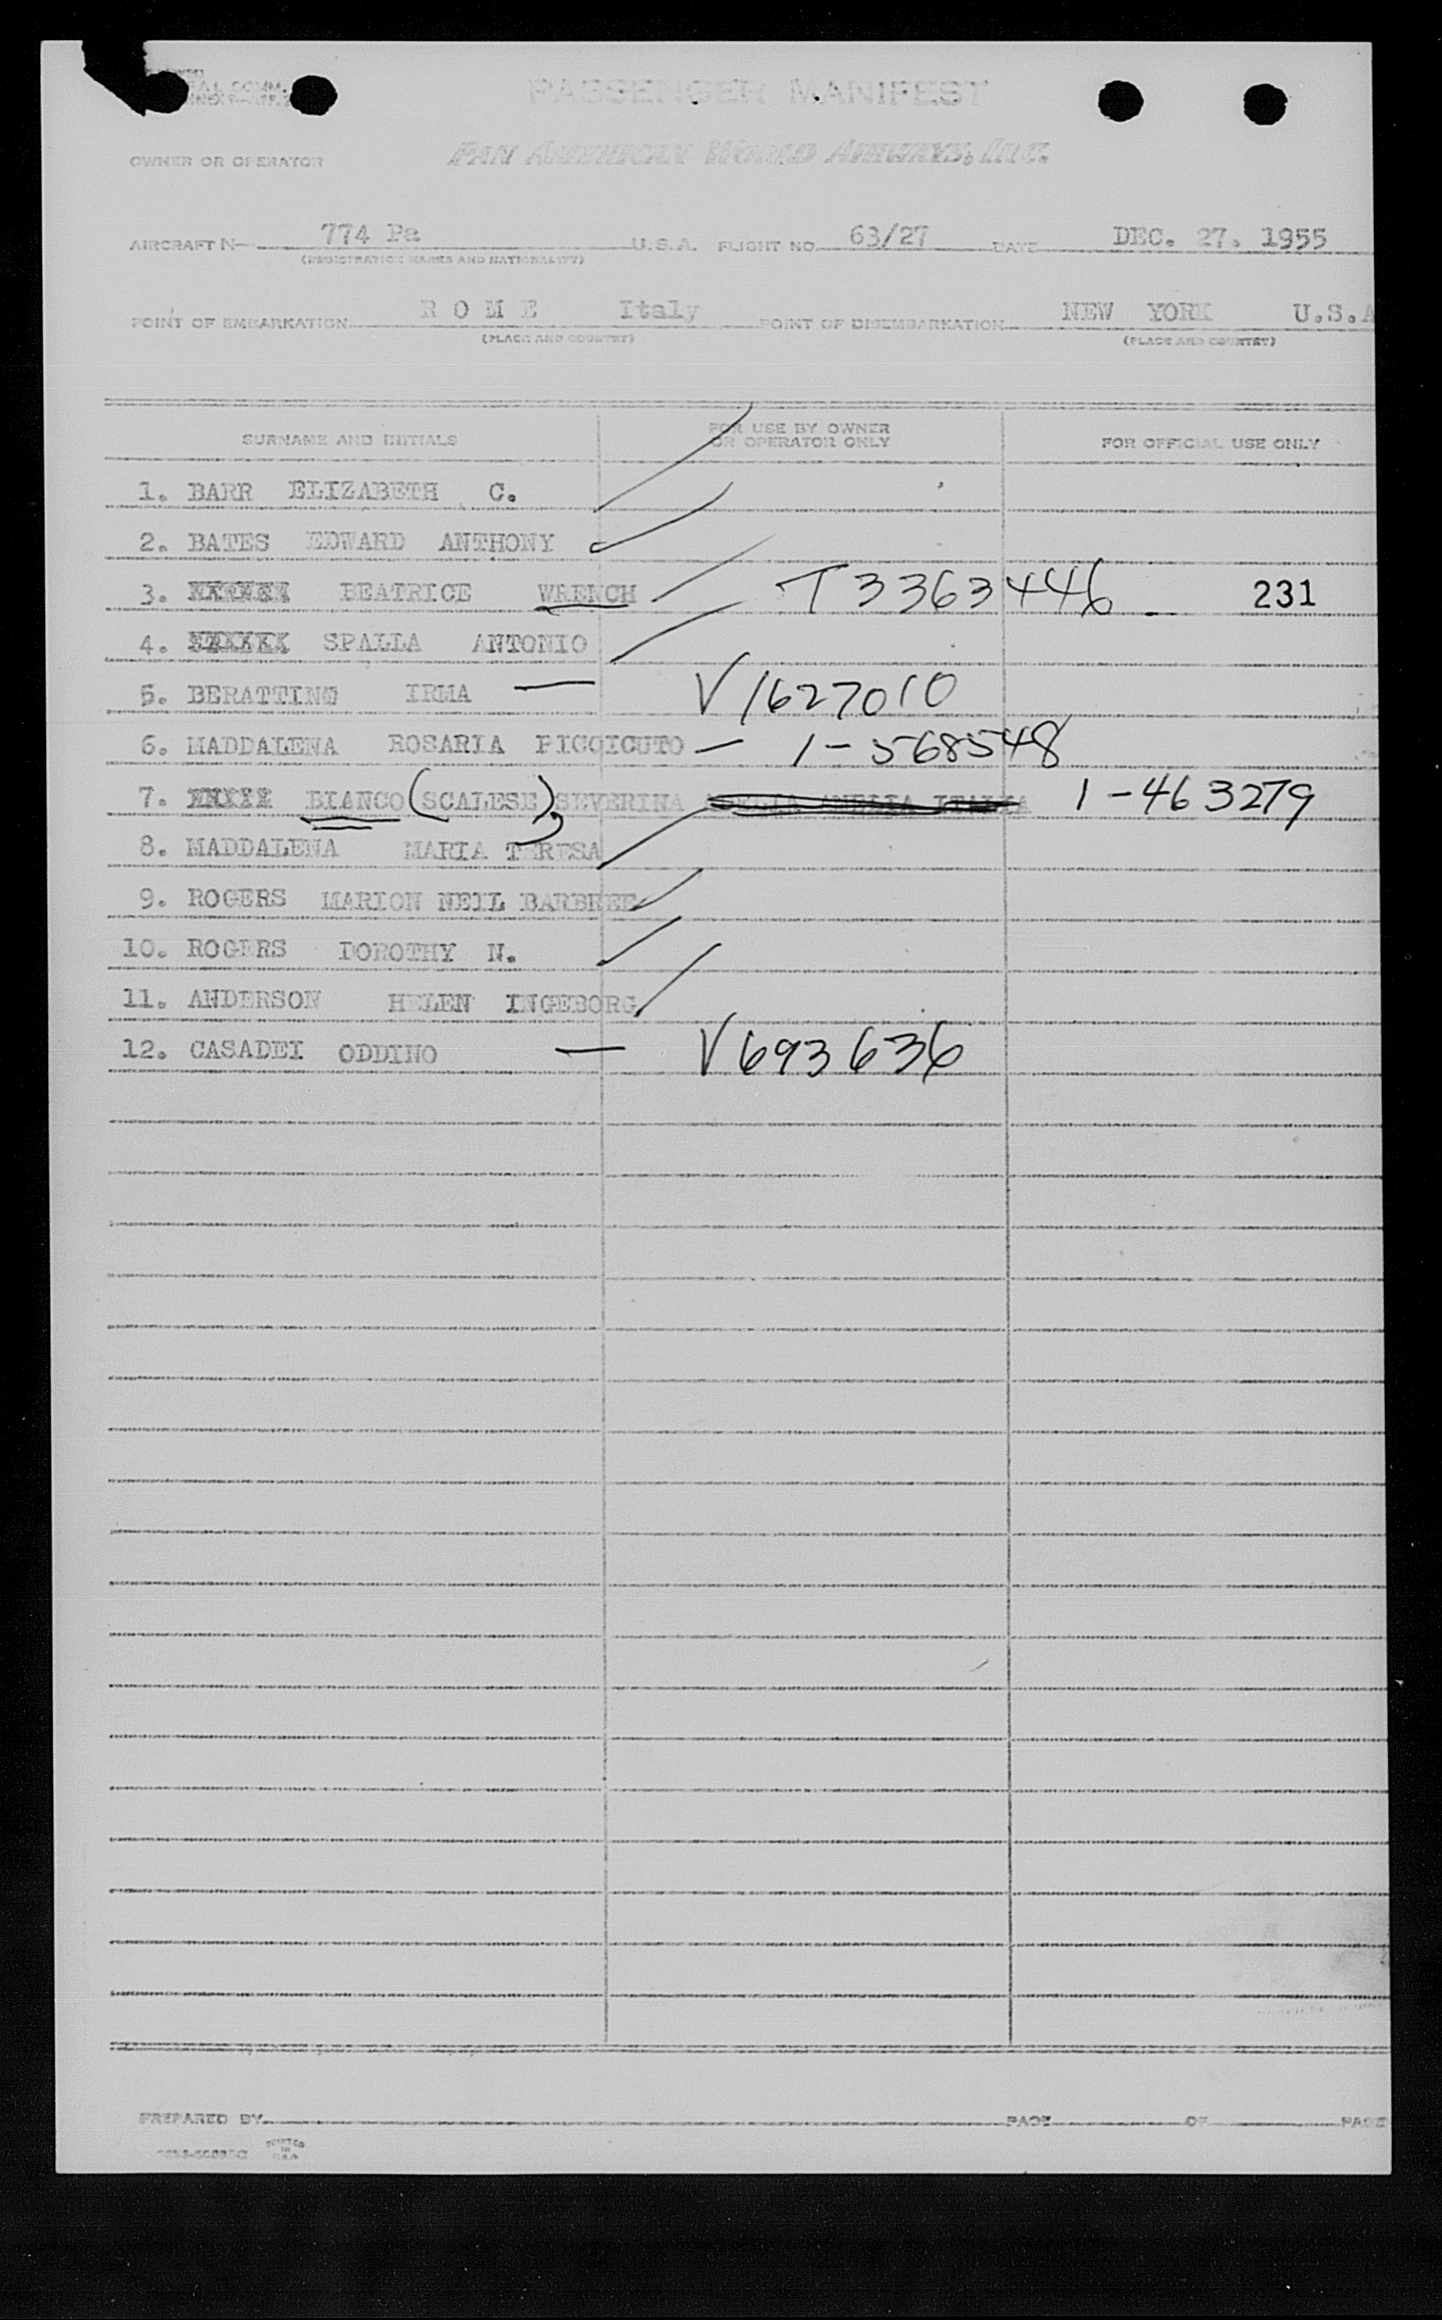 PASSENGER MANIFEST
OWNER OR OPERATOR PAN AMERICAN WORLD AIRWAYS, INC.
AIRCRAFT N- 774 Pa U.S.A. FLIGHT NO. 63/27 DATE DEC. 27. 1955
(REGISTRATION MARKS AND NATIONALITY)
POINT OF EMBARKATION ROME Italy POINT OF DISEMBARKATION NEW YORK U.S.A
(PLACE AND COUNTRY) (PLACE AND COUNTRY)
SURNAME AND INITIALS FOR USE BY OWNER OR OPERATOR ONLY FOR OFFICIAL USE ONLY
1. BARR ELIZABETH C.
2. BATES EDWARD ANTHONY
3. BEATRICE WRENCH T3363446 231
4. SPALLA ANTONIO
5. BERATTINO IRMA — V1627010
6. MADDALENA ROSARIA PICCICUTO — 1-568548
7. BIANCO (SCALESE), SEVERINA 1-463279
8. MADDALENA MARIA TERESA
9. ROGERS MARION NEIL BARBREE
10. ROGERS DOROTHY N.
11. ANDERSON HELEN INGEBORG
12. CASADEI ODDINO — V693636
PREPARED BY PAGE OF PAGE
PRINTED IN U.S.A.